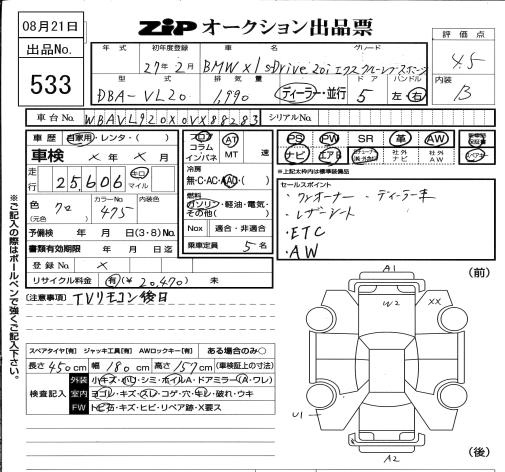 08月21日
ZIP オークション出品票
評価点
4.5
出品No.
533
年式 初年度登録 車名 グレード
27年2月 BMW X1 sDrive 20i
内装
B
型式 排気量 ドア ハンドル
DBA-VL20 1,990 ディーラー・並行 5 左・右
車台No. WBAVL920X0VX88283 シリアルNo.
車歴 自家用・レンタ・( )
車検 × 年 × 月
走行 25,606 キロ マイル
色 クロ カラーNo. 475 内装色
(元色)
予備検 年 月 日(3・8)No.
書類有効期限 年 月 日迄
登録No. ×
リサイクル料金 有(¥20,470) 未
フロア コラム インパネ
AT MT 速
冷房
無・C・AC・AAC・( )
燃料
ガソリン・軽油・電気・その他( )
Nox 適合・非適合
乗車定員 5名
PS PW SR 革 AW
ナビ エアB 社外ナビ 社外AW
*上記太枠内は標準装備品
セールスポイント
・ワンオーナー ・ディーラー車
・レザーシート
・ETC
・AW
(注意事項) TVリモコン後日
※ご記入の際はボールペンで強くご記入下さい。
スペアタイヤ[有] ジャッキ工具[有] AWロックキー[有] ある場合のみ○
長さ450cm 幅180cm 高さ157cm (車検証上の寸法)
検査記入
外装 小キズ・ヘコ・シミ・ホイルA・ドアミラー(A・ワレ)
室内 ヨゴレ・キズ・スレ・コゲ・穴・キレ・破れ・ウキ
FW トビ石・キズ・ヒビ・リペア跡・X要ス
(前)
A1
W2
XX
U1
A2
(後)